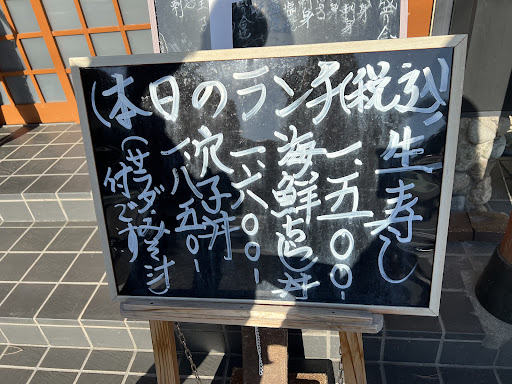 本日のランチ(税込)
生寿し
一、五〇〇-
海鮮ちらし丼
一、六〇〇-
穴子丼
一、八五〇-
(サラダ・みそ汁
付です)